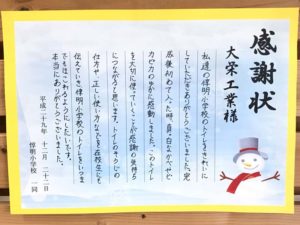 感謝状
大栄工業様
私達の惇明小学校のトイレをきれいに
していただきありがとうございました。完
成後初めて入った時、真っ白なかべやピ
カピカのゆかに感動しました。このトイレ
を大切に使っていくことが感謝の気持ち
につながると思います。トイレのそうじの
仕方や正しい使い方などを在校生にも
伝えていき惇明小学校のトイレをいつま
でもほこれるようにしたいです。
本当にありがとうございました。
平成二十九年 十一月 二十二日
惇明小学校 一同